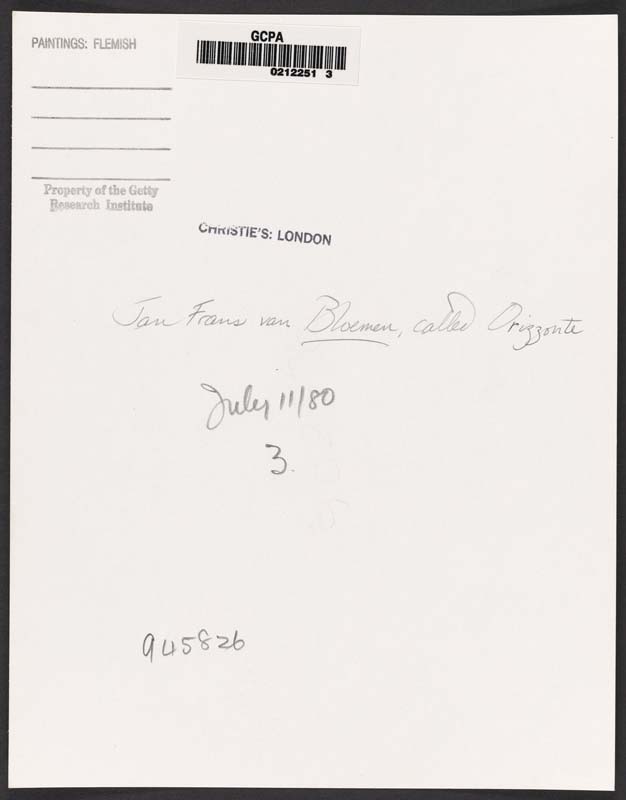 PAINTINGS: FLEMISH
GCPA
0212251 3
Property of the Getty
Research Institute
CHRISTIE'S: LONDON
Jan Frans van Bloemen, called Orizzonte
July 11/80
3.
945826